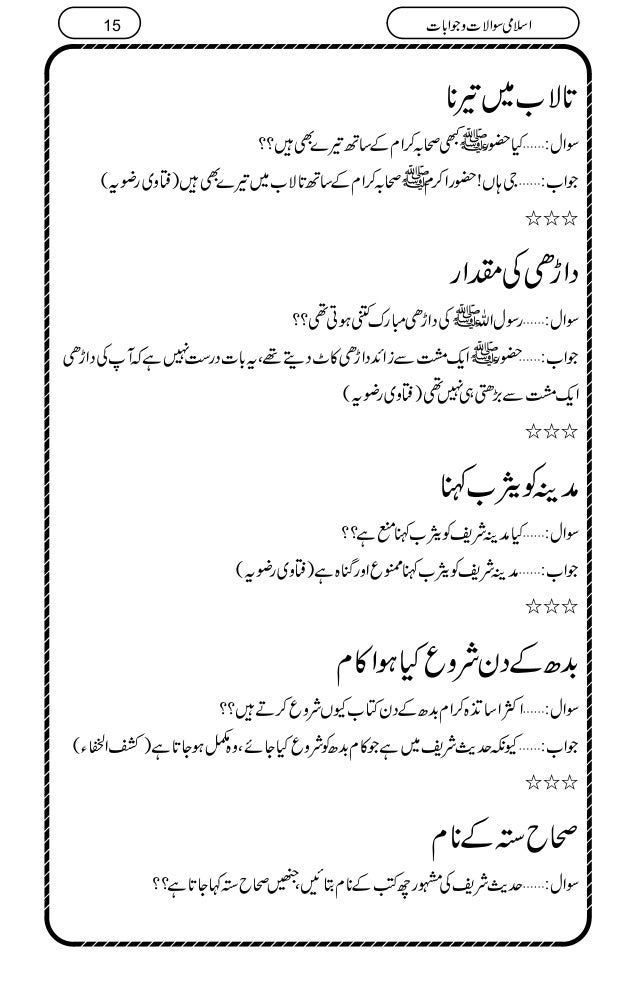 اسلامی سوالات و جوابات
15
تالاب میں تیرنا
سوال:......کیا حضور ﷺ کبھی صحابہ کرام کے ساتھ تیرے بھی ہیں؟؟
جواب:......جی ہاں! حضور اکرم ﷺ صحابہ کرام کے ساتھ تالاب میں تیرے بھی ہیں (فتاوی رضویہ)
☆☆☆
داڑھی کی مقدار
سوال:......رسول اللہ ﷺ کی داڑھی مبارک کتنی ہوتی تھی؟؟
جواب:......حضور ﷺ ایک مشت سے زائد داڑھی کاٹ دیتے تھے، یہ بات درست نہیں ہے کہ آپ کی داڑھی
ایک مشت سے بڑھتی ہی نہیں تھی (فتاوی رضویہ)
☆☆☆
مدینہ کو یثرب کہنا
سوال:......کیا مدینہ شریف کو یثرب کہنا منع ہے؟؟
جواب:......مدینہ شریف کو یثرب کہنا ممنوع اور گناہ ہے (فتاوی رضویہ)
☆☆☆
بدھ کے دن شروع کیا ہوا کام
سوال:......اکثر اساتذہ کرام بدھ کے دن کتاب کیوں شروع کرتے ہیں؟؟
جواب:......کیونکہ حدیث شریف میں ہے جو کام بدھ کو شروع کیا جائے، وہ مکمل ہو جاتا ہے (کشف الخفاء)
☆☆☆
صحاح ستہ کے نام
سوال:......حدیث شریف کی مشہور چھ کتب کے نام بتائیں، جنھیں صحاح ستہ کہا جاتا ہے؟؟